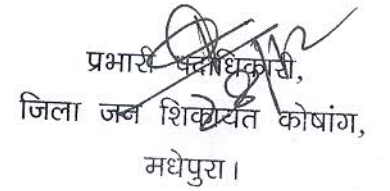 प्रभारी पदाधिकारी,
जिला जन शिकायत कोषांग,
मधेपुरा।